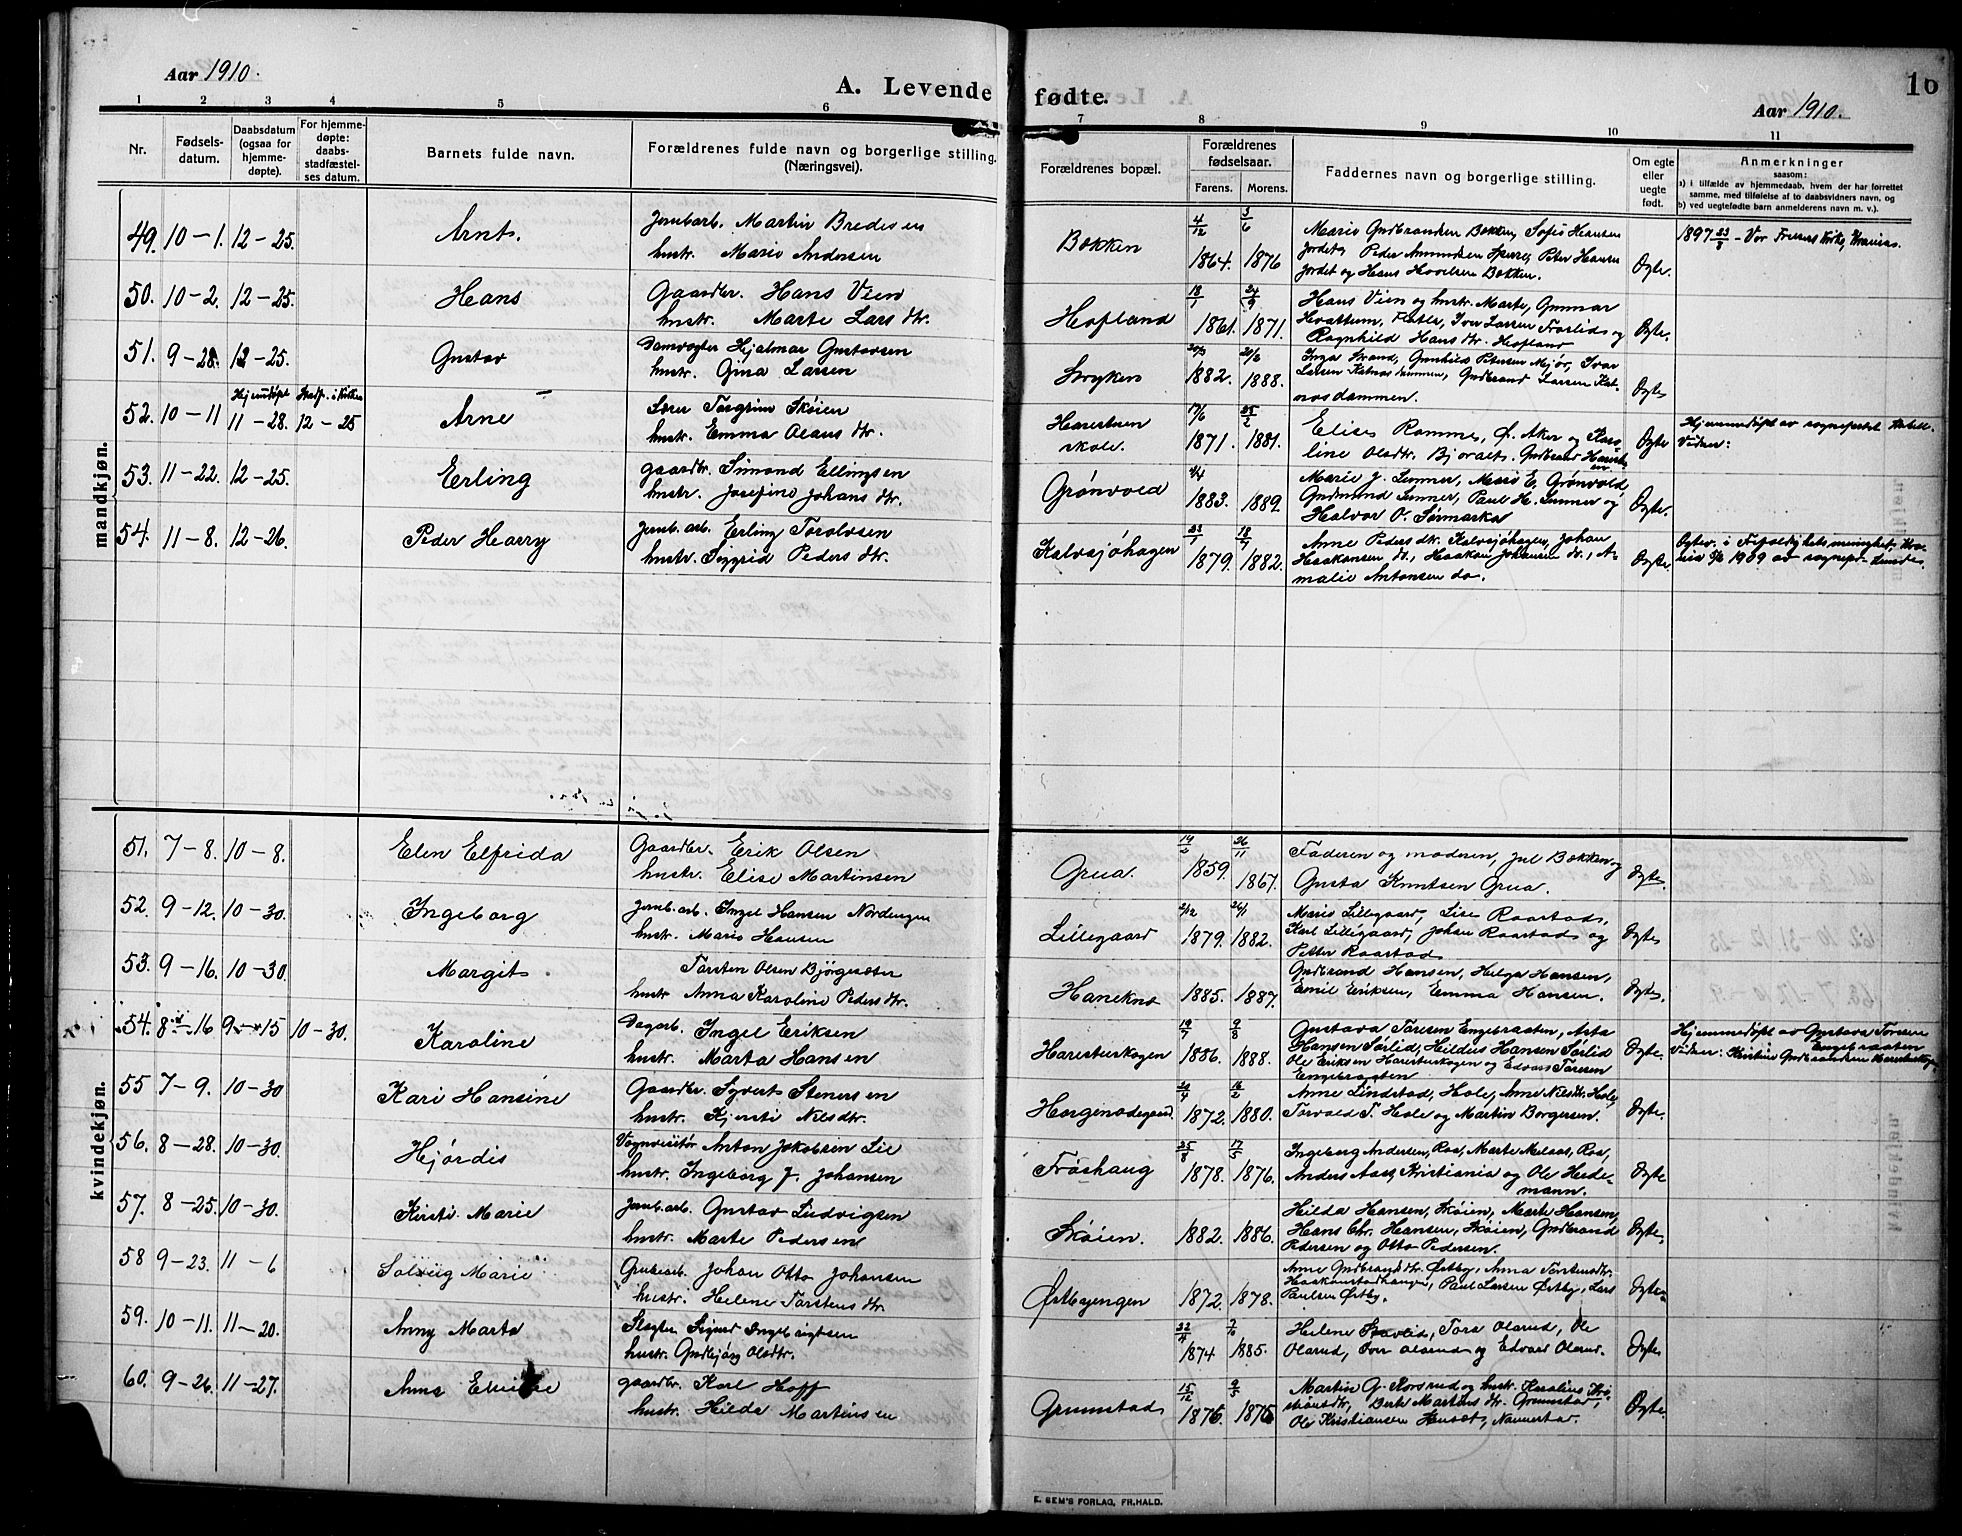 Aar 1910.
A. Levende fødte.
16
Aar 1910.
1 2 3 4 5 6 7 8 9 10 11
Nr.
Fødsels-
datum.
Daabsdatum
(ogsaa for
hjemme-
døpte).
For hjemme-
døpte:
daabs-
stadfæstel-
ses datum.
Barnets fulde navn.
Forældrenes fulde navn og borgerlige stilling.
(Næringsvei).
Forældrenes bopæl.
Forældrenes
fødselsaar.
Farens. Morens.
Faddernes navn og borgerlige stilling.
Om egte
eller
uegte
født.
Anmerkninger
saasom:
a) i tilfælde av hjemmedaab, hvem der har forrettet
samme, med tilføielse af to daabsvidners navn, og
b) ved uegtefødte barn anmelderens navn m. v.).
mandkjøn.
49. 10-1. 12-25. Arnt. Jernb.arb. Martin Bredesen
hustr. Marie Andersen
Bækken 4/12 1864. 3/6 1876
Marie Gudbrandsen Bækken, Sofie Hansen
Jordet, Peder Amundsen Sperre, Peter Hansen
Jordet og Hans Hovelsen Bækken.
Egte.
1897 23/8 - Vor Frelsers Kirke, Kra.nia.
50. 10-2. 12-25. Hans Gaardbr. Hans Vien
hustr. Marte Larsdtr.
Hofland 18/1 1861. 24/9 1871.
Hans Vien og hustr. Marte, Gunnar
Hvattum, Iver Larsen Forlid, og
Ragnhild Hansdtr. Hofland
Egte.
51. 9-28. 12-25. Gustav Damvogter Hjalmar Gustavsen
hustr. Gina Larsen
Stryken 1882. 1888.
Inga Strand, Gunhild Petersen Mjør, Ivar
Larsen Katnosdammen, Gudbrand Larsen Kat-
nosdammen.
Egte
52. 10-11 Hjemmedøpt 11-28. Stadf. i Kirken 12-25 Arne
Lærer Torgrim Skøien
hustr. Emma Olausdtr.
Harestuen
skole. 17/6 1871. 25/2 1881.
Elise Ramme, Ø. Aker og Karo-
line Olsdtr. Bjoralt. Gudbrand Harestu-
en
Egte
Hjemmedøpt av sogneprest
Vidner:
53. 11-22. 12-25. Erling gaardbr. Simond Ellingsen
hustr. Josefine Johansdtr.
Grønvold 1883. 1889.
Marie J. Lunner, Marie E. Grønvold,
Gudmund Lunner, Paul H. Lunner og
Halvor O. Sørmarka
Egte.
54. 11-8. 12-26. Peder Harry Jernb.arb. Erling Torolvsen
hustr. Sigrid Pedersdtr.
Kalvsjøhagen 23/1 1879. 18/7 1882.
Anne Pedersdtr. Kalvsjøhagen, Johan
Haakonsen do., Haakon Johansen do., A-
malie Antonsen do.
Egte.
Egtev. i Trefoldighetsmenighet, Kra-
nia 1909 av sognepr.
kvindekjøn.
51. 7-8. 10-8. Elen Elfrida Gaardbr. Erik Olsen
hustr. Elise Martinsen
Grua. 14/2 1859. 26/11 1867.
Faderen og moderen, Jul Bækken og
Gusta Knutsen Grua.
Egte.
52. 9-12. 10-30. Ingeborg Jernb.arb. Ingel Hansen Nordengen
hustr. Marie Hansen
Lillegaard 2/12 1879. 26/1 1882.
Marie Lillegaard, Lise Raastad,
Karl Lillegaard, Johan Raastad og
Petter Raastad
Egte
53. 9-16. 10-30. Margit. Torsten Olsen Bjørgesæter
hustr Anna Karoline Pedersdtr.
Haneknæ 1885. 1887.
Gudbrand Hansen, Helga Hansen,
Emil Eriksen, Emma Hansen.
Egte.
54. 8-16 9-15 10-30. Karoline Dagarb. Ingel Eriksen
hustr. Marta Hansen
Harestuskogen 19/7 1886. 9/8 1888.
Gustava Toresen Engebraaten, Asta
Hansen Sørlid, Hilda Hansen Sørlid
Ole Eriksen Harestuskogen og Edvard Toresen
Engebraaten
Egte.
Hjemmedøpt av Gustava Toresen
Engebraaten
Vidner: Kristine Gudbrandsen Harestuskogen
55 7-9. 10-30 Kari Hansine Gaardbr. Syvert Stenersen
hustr. Kjersti Nilsdtr.
Horgenødegaard. 20/4 1872. 16/2 1880.
Anne Lindstad, Hole, Anne Nilsdtr. Hole,
Torvald T. Hole og Martin Borgersen.
Egte.
56. 8-28. 10-30. Hjørdis Vognvisitør Anton Jakobsen Lie
hustr. Ingeborg J. Johansen
Frøshaug 25/8 1878. 17/5 1876.
Ingeborg Andersen, Roa, Marte Melaas, Roa,
Anders Aas, Kristiania og Ole Hede-
mann.
Egte
57. 8-25. 10-30. Kirsti Marie Jernb.arb. Gustav Ludvigsen
hustr. Marte Pedersen
Skøien. 1882. 1886.
Hilda Hansen, Skøien, Marte Hansen,
Hans Chr. Hansen, Skøien, Gudbrand
Pedersen og Otto Pedersen.
Egte.
58 9-23. 11-6 Solveig Marie Grubearb. Johan Otto Johansen
hustr. Helene Torstensdtr
Østbyengen 1872 1878.
Anne Gudbrandsdtr. Østby, Anna Torstensdtr.
Haakonstadhagen, Paul Larsen Østby, Lars
Paulsen Østby.
Egte
59. 10-11. 11-20. Anny Marta Slagter Sigurd Ingebrigtsen
hustr. Gudbjørg Olsdtr.
22/4 1874 1885.
Helene Stavlid, Tora Olerud, Ole
Olerud, Iver Olerud og Edvard Olerud.
Egte
60. 9-26. 11-27. Anna gaardbr. Karl Hoff
hustr. Hilda Martinsen
Grumstad 15/12 1876. 9/5 1875
Martin G. Korsrud og hustr. Karoline Kri-
stiansdtr., Berte Martinsdtr. Grumstad,
Ole Kristiansen Nannestad.
Egte.
E. SEM'S FORLAG, FR.HALD.